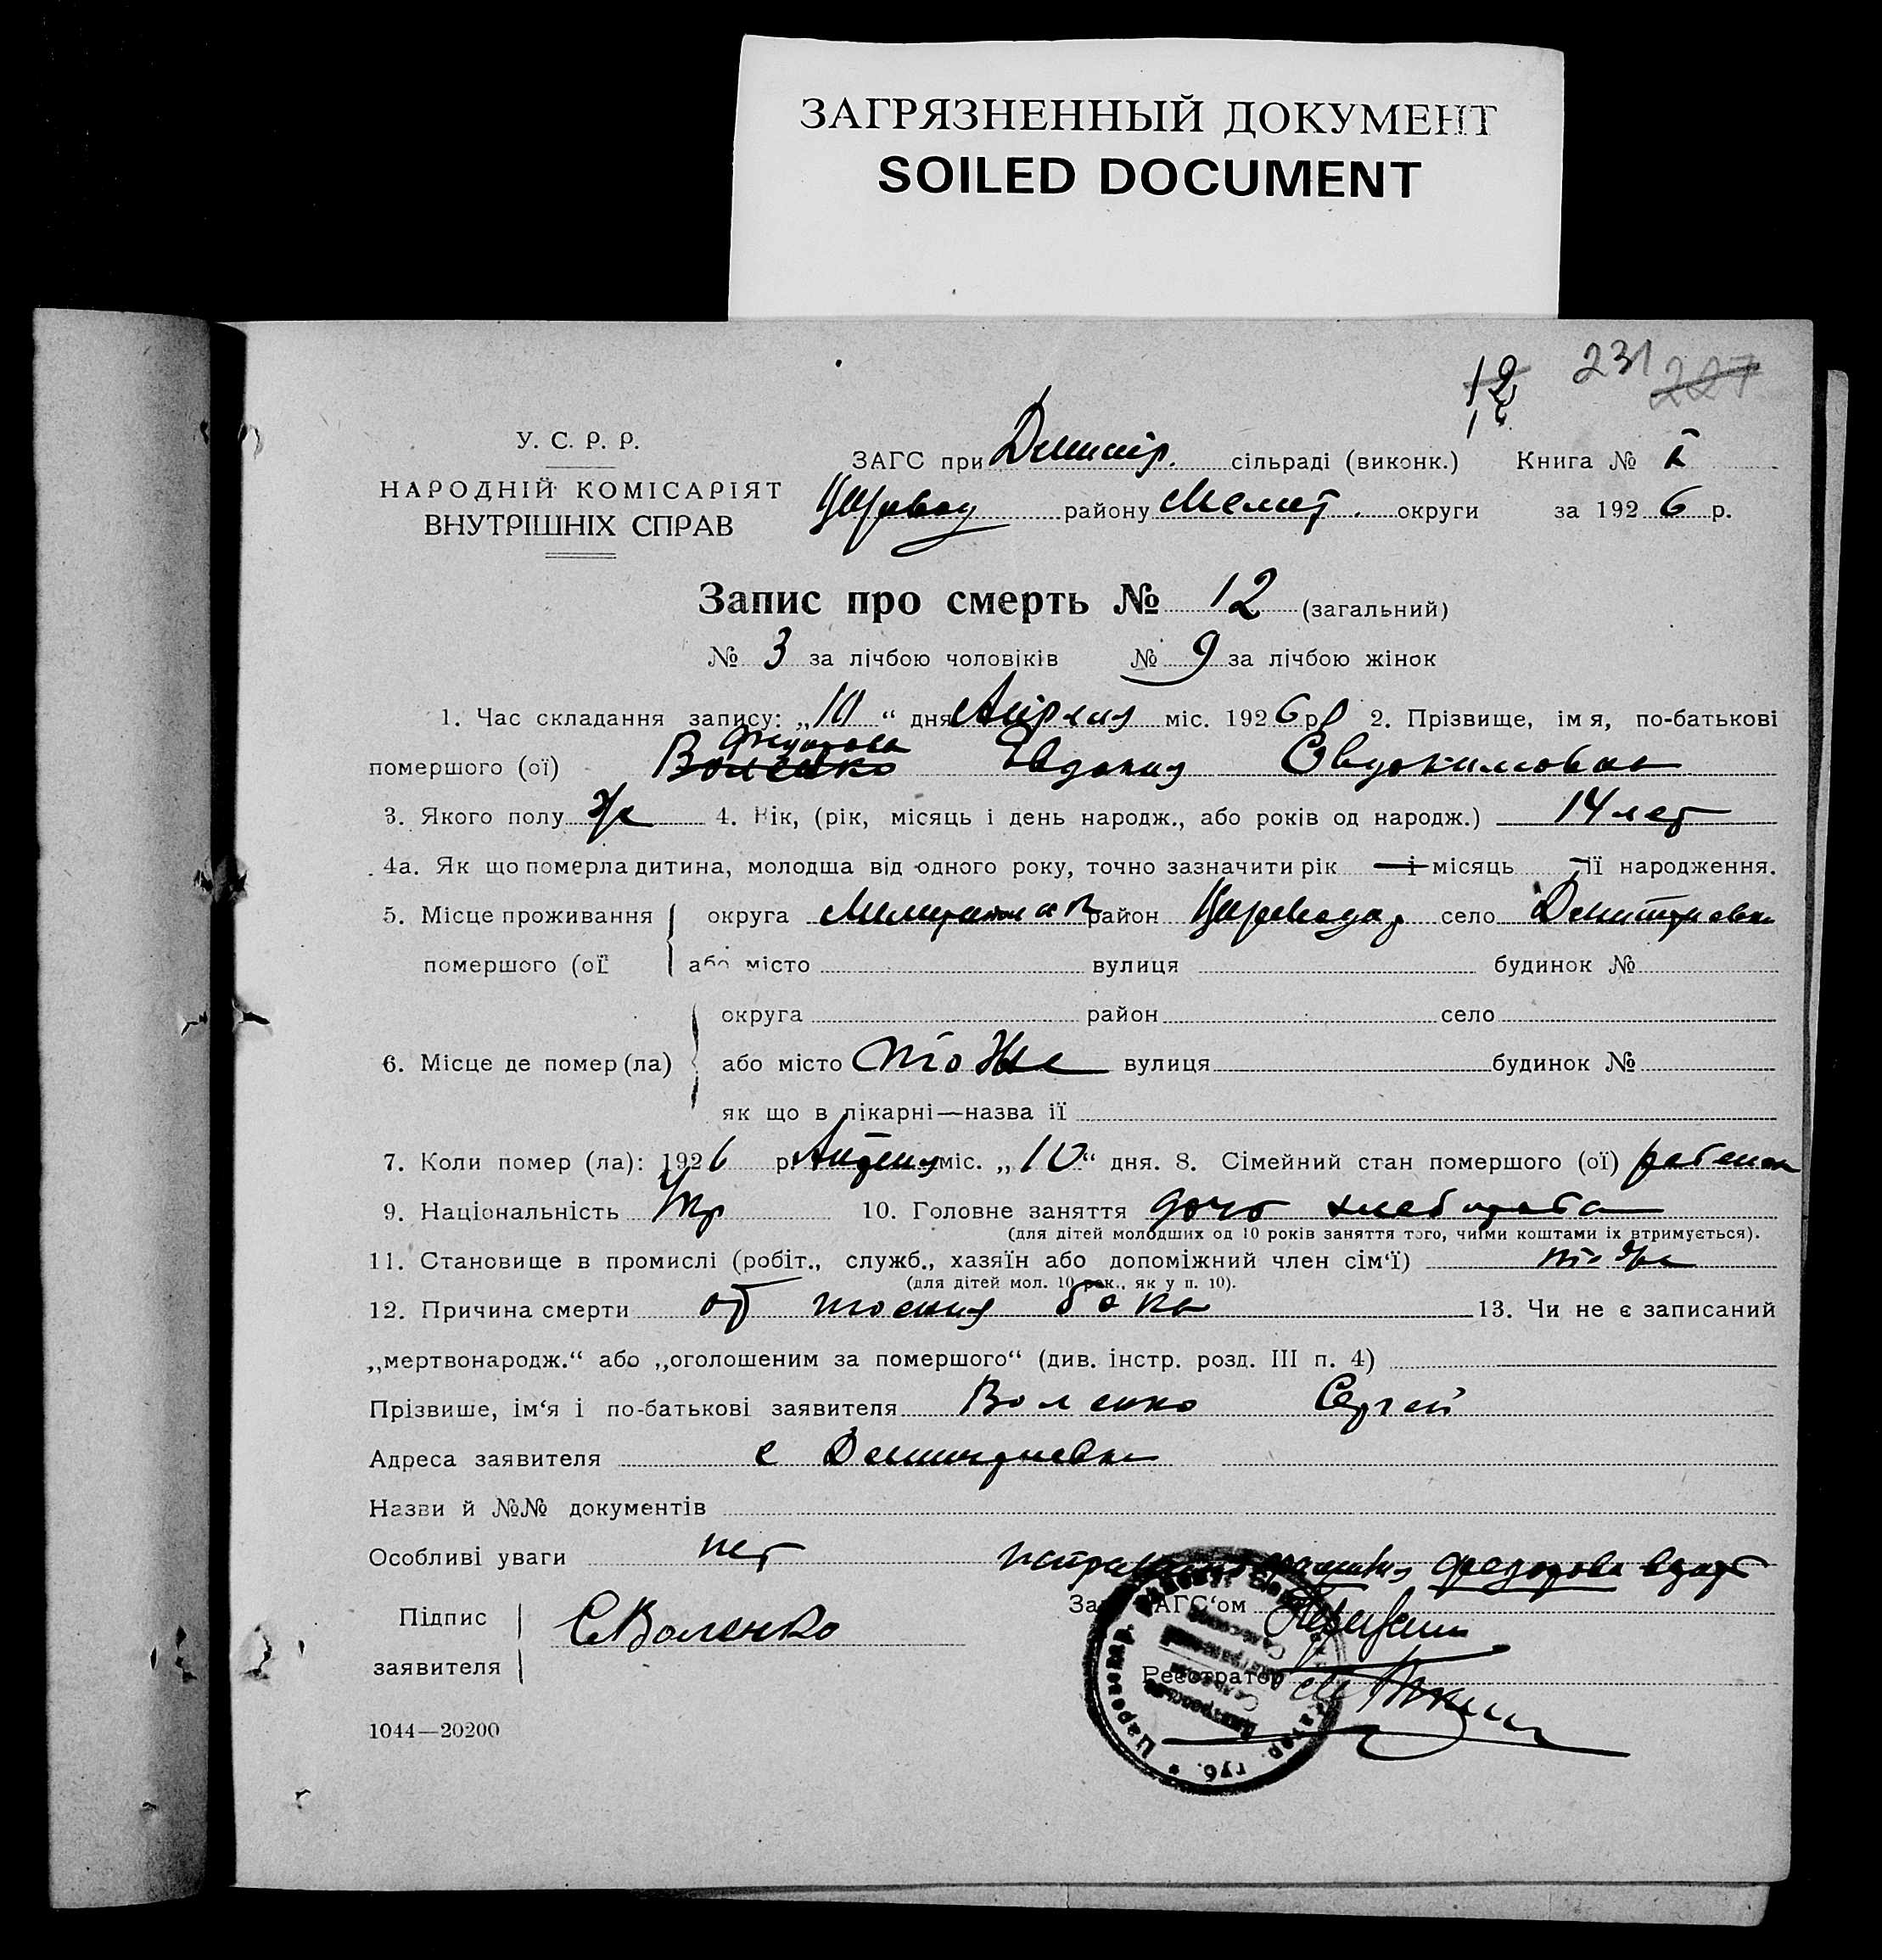 ЗАГРЯЗНЕННЫЙ ДОКУМЕНТ
SOILED DOCUMENT
12 231 227
У. С. Р. Р.
НАРОДНІЙ КОМІСАРІЯТ
ВНУТРІШНІХ СПРАВ
ЗАГС при сільраді (виконк.) Книга № I
району Мелит. округи за 1926 р.
Запис про смерть № 12 (загальний)
№ 3 за лічбою чоловіків № 9 за лічбою жінок
1. Час складання запису: „10“ дня Апреля міс. 1926 р. 2. Прізвище, імя, по-батькові
Федорова
помершого (ої) Воленко Евдокия Евдокимовна
3. Якого полу ж 4. Вік, (рік, місяць і день народж., або років од народж.) 14 лет
4а. Як що померла дитина, молодша від одного року, точно зазначити рік — і місяць її народження.
5. Місце проживання округа район село Дмитриевка
помершого (ої або місто вулиця будинок №
округа район село
6. Місце де помер (ла) або місто то же вулиця будинок №
як що в лікарні—назва її
7. Коли помер (ла): 1926 р. Апреля міс. „10“ дня. 8. Сімейний стан помершого (ої) ребенок
9. Національність Укр 10. Головне заняття дочь хлебороба
(для дітей молодших од 10 років заняття того, чиїми коштами їх втримується).
11. Становище в промислі (робіт., служб., хазяїн або допоміжний член сім‘ї) то же
(для дітей мол. 10 рок., як у п. 10).
12. Причина смерти от бока 13. Чи не є записаний
„мертвонародж.“ або „оголошеним за помершого“ (див. інстр. розд. III п. 4)
Прізвише, ім‘я і по-батькові заявителя Воленко Сергей
Адреса заявителя с Дмитриевка
Назви й №№ документів
Особливі уваги нет Федорова
Зав. ЗАГС‘ом
Підпис
заявителя СВоленко
Реєстратор
1044—20200